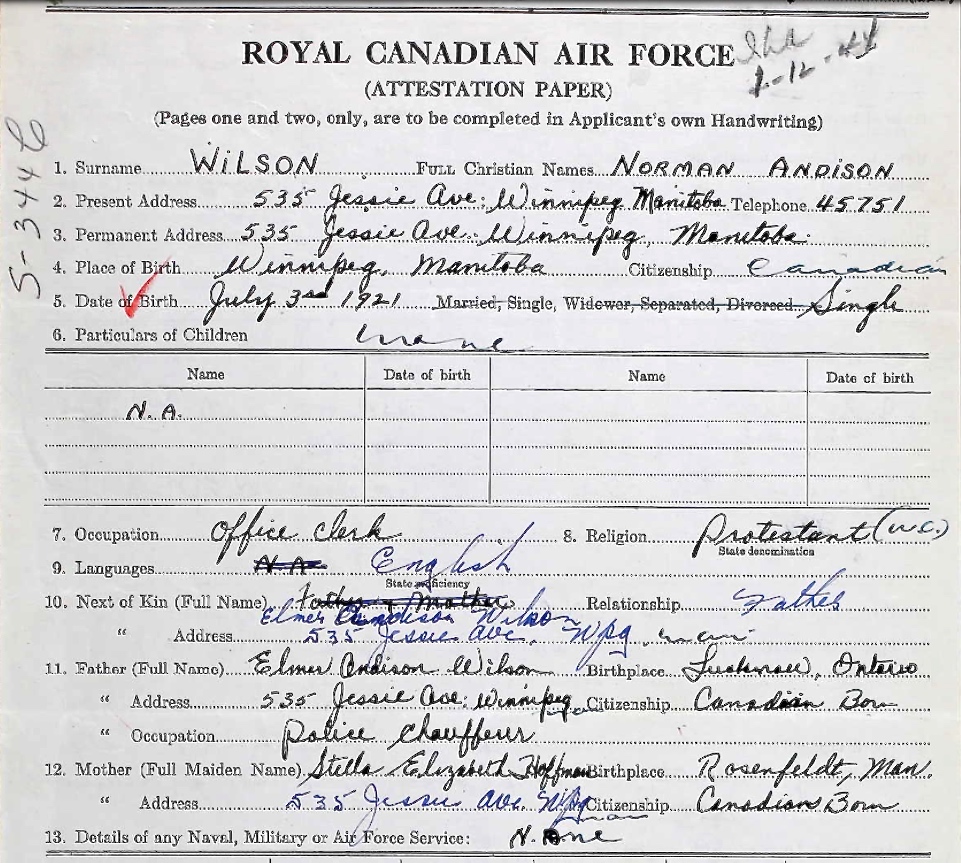 ROYAL CANADIAN AIR FORCE
2-12-41
(ATTESTATION PAPER)
(Pages one and two, only, are to be completed in Applicant's own Handwriting)
1. Surname WILSON FULL Christian Names NORMAN ANDISON
2. Present Address 535 Jessie Ave: Winnipeg Manitoba Telephone 45751
3. Permanent Address 535 Jessie Ave. Winnipeg, Manitoba.
4. Place of Birth Winnipeg, Manitoba Citizenship Canadian
5. Date of Birth July 3rd 1921 Married, Single, Widower, Separated, Divorced Single
6. Particulars of Children none
Name Date of birth Name Date of birth
N.A.
7. Occupation Office Clerk 8. Religion Protestant (U.C.)
State denomination
9. Languages N.A. English
State proficiency
10. Next of Kin (Full Name) Father or Mother Relationship Father
Elmer Andison Wilson
" Address 535 Jessie Ave. Wpg
11. Father (Full Name) Elmer Andison Wilson Birthplace Lucknow, Ontario
" Address 535 Jessie Ave: Winnipeg Citizenship Canadian Born
" Occupation Police Chauffeur
12. Mother (Full Maiden Name) Stella Elizabeth Hoffman Birthplace Rosenfeldt, Man.
" Address 535 Jessie Ave. Wpg Citizenship Canadian Born
13. Details of any Naval, Military or Air Force Service: None
5-344